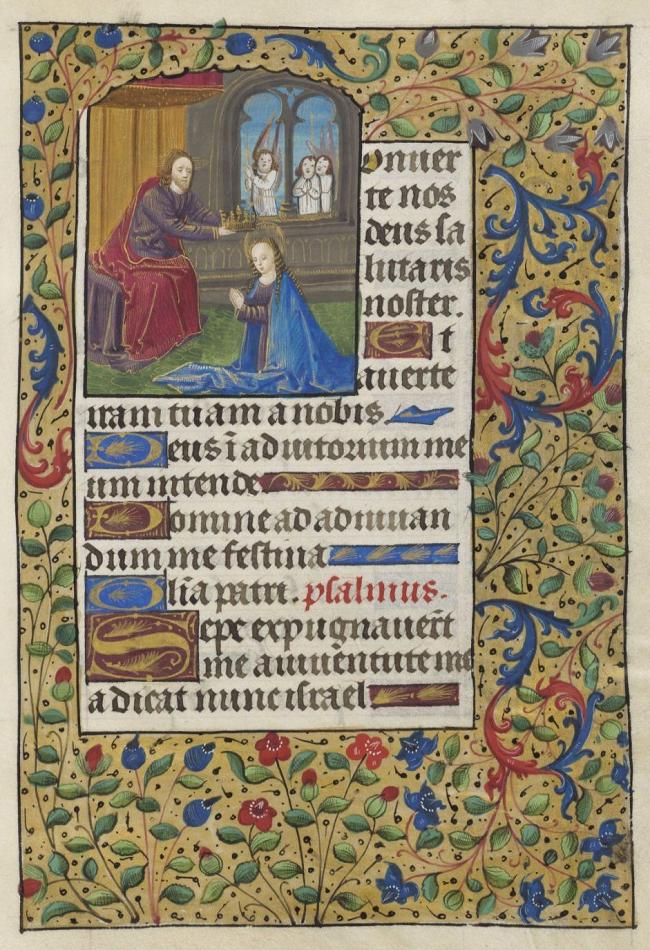 onuer
te nos
deus sa
lutaris
noster.
Et
auerte
iram tuam a nobis
Deus i adiutorium me
um intende
Domine ad adiuuan
dum me festina
Glia patri. psalmus.
Sepe expugnauert
me a iuuentute me
a dicat nunc israel